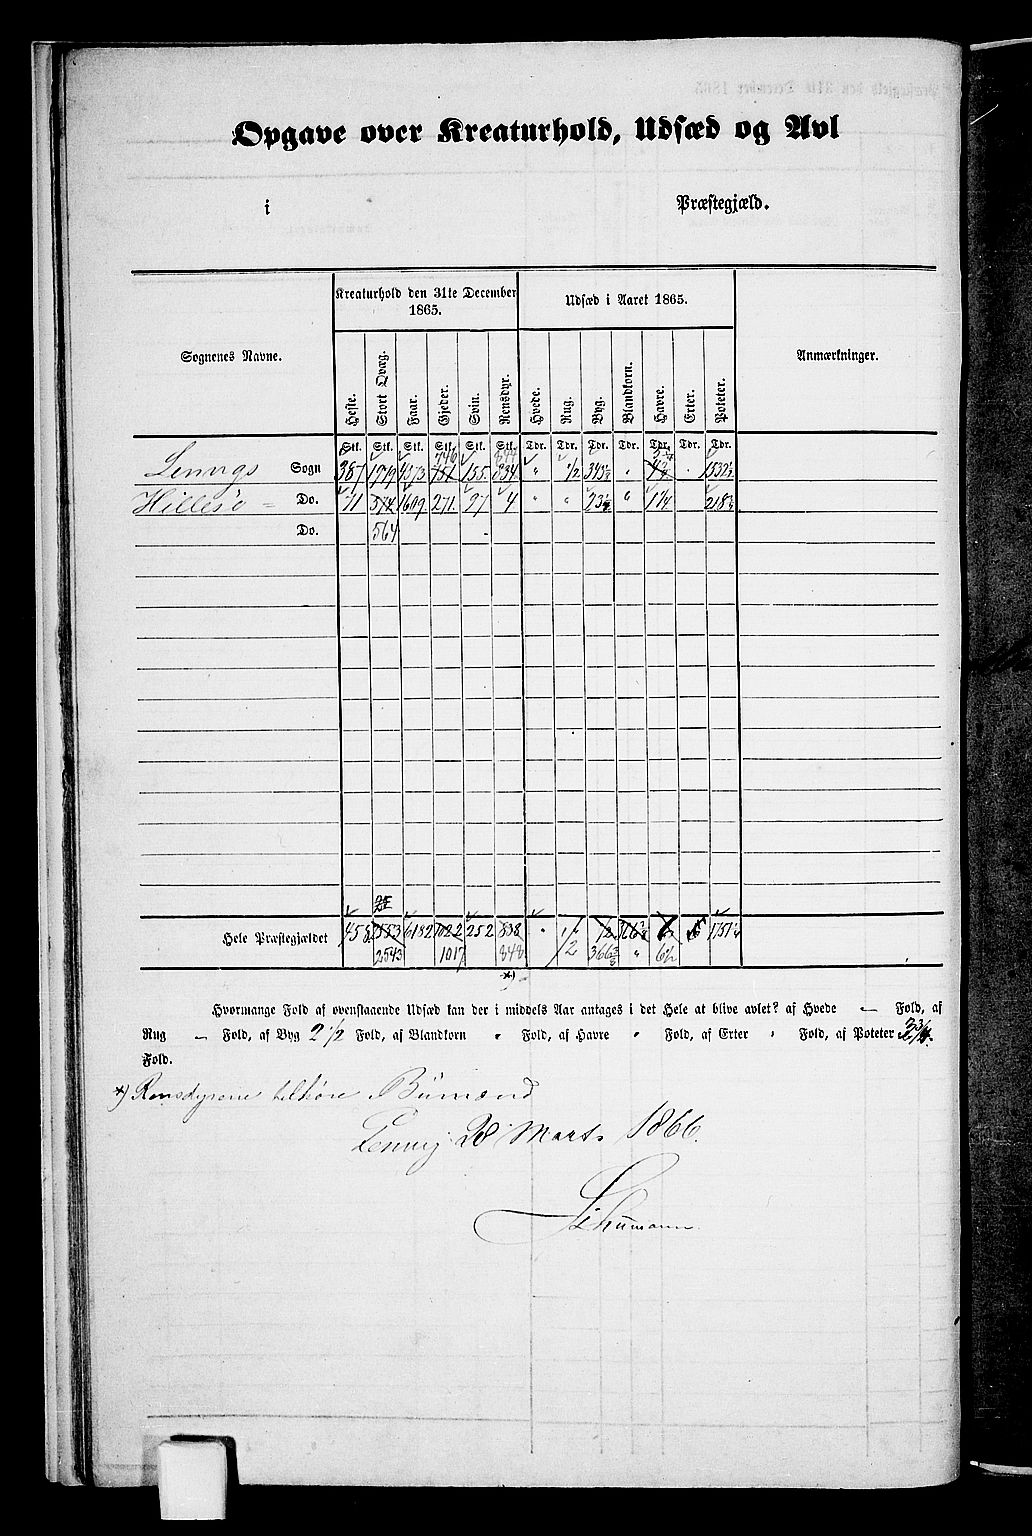 Opgave over Kreaturhold, Udsæd og Avl
i Præstegjæld.
Sognenes Navne. Kreaturhold den 31te December 1865. Udsæd i Aaret 1865. Anmærkninger.
Heste. Stort Qvæg. Faar. Gjeder. Svin. Rensdyr. Hvede. Rug. Byg. Blandkorn. Havre. Erter. Poteter.
Stk. Stk. Stk. Stk. Stk. Stk. Tdr. Tdr. Tdr. Tdr. Tdr. Tdr. Tdr.
746 844
Lenvigs Sogn 387 1979 4573 751 155 834 " 1/2 343½ " 1532½
Hillesø = Do. 71 574 1609 271. 97 4 " " 23½ " 218¾
Do. 564
Hele Præstegjældet 458 2553 6182 1022 252 838 " 1/2 1751¼
2543 1017 848 " 6½
*)
Hvormange Fold af ovenstaaende Udsæd kan der i middels Aar antages i det Hele at blive avlet? af Hvede — Fold, af
Rug — Fold, af Byg 2 1/2 Fold, af Blandkorn " Fold, af Havre " Fold, af Erter " Fold, af Poteter
Fold.
*) Rensdyrene tilhøre Bümænd
Lenvig 28 Marts 1866.
Schümann